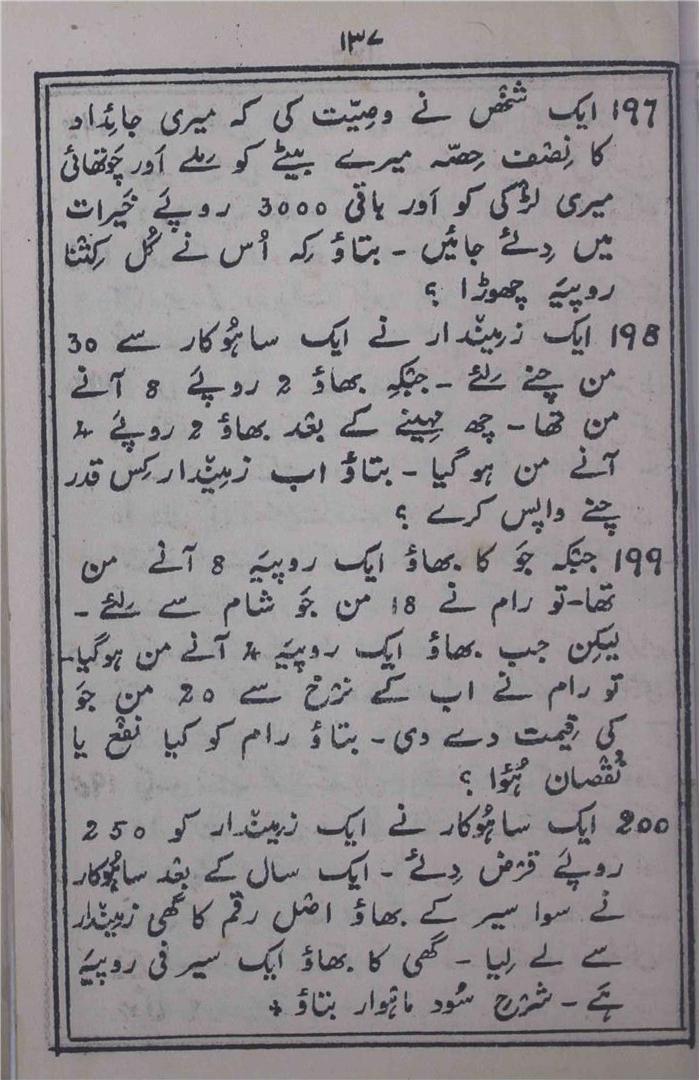 ۱۳۷
197 ایک شخص نے وصیّت کی کہ میری جائداد
کا نِصف حِصّہ میرے بیٹے کو مِلے اَور چَوتھائی
میری لڑکی کو اَور باقی 3000 روپَے خَیرات
میں دِئے جائیں - بتاؤ کہ اُس نے کُل کِتنا
روپیَہ چھوڑا ؟
198 ایک زمیندار نے ایک ساہُوکار سے 30
من چنے لِئے - جبکہ بھاؤ 2 روپَے 8 آنے
من تھا - چھ مہینے کے بعد بھاؤ 2 روپَے 4
آنے من ہو گیا - بتاؤ اب زمیندار کِس قدر
چنے واپس کرے ؟
199 جبکہ جَو کا بھاؤ ایک روپیَہ 8 آنے من
تھا - تو رام نے 18 من جَو شام سے لِئے -
لیکِن جب بھاؤ ایک روپیَہ 4 آنے من ہو گیا -
تو رام نے اب کے نرخ سے 20 من جَو
کی قِیمت دے دی - بتاؤ رام کو کیا نفع یا
نُقصان ہُؤا ؟
200 ایک ساہُوکار نے ایک زمیندار کو 250
روپَے قرض دِئے - ایک سال کے بعد ساہُوکار
نے سوا سیر کے بھاؤ اصل رقم کا گھی زمیندار
سے لے لِیا - گھی کا بھاؤ ایک سیر فی روپیَہ
ہَے - شرح سُود ماہوار بتاؤ +